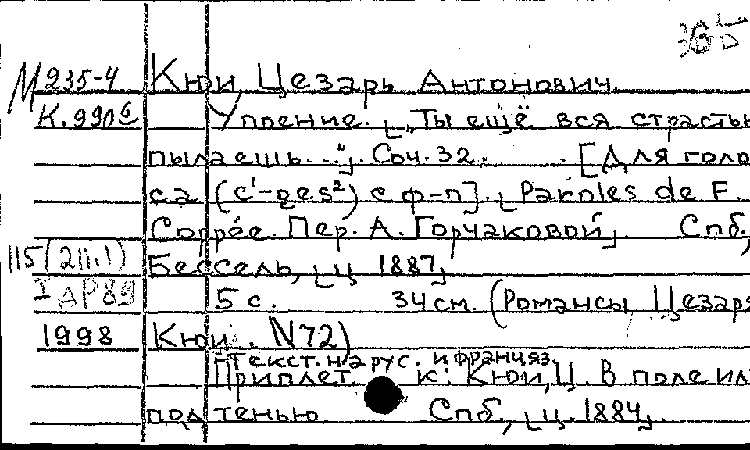 36
М 235-4 Кюи, Цезарь Антонович.
К.990 Упоение. ["Ты ещё вся страстью
пылаешь..."]. Соч. 32. [Для голо
са (c¹-ges²) с ф-п]. [Paroles de F.
Coppée. Пер. А. Горчаковой]. Спб.,
115 (211.1) Бессель, [ц. 1887]
I АР 89 5 с. 34 см. (Романсы Цезаря
1998 Кюи. N72)
Текст. на рус. и француз.
Приплет. к: Кюи, Ц. В поле ил
под тенью Спб., [ц. 1884].